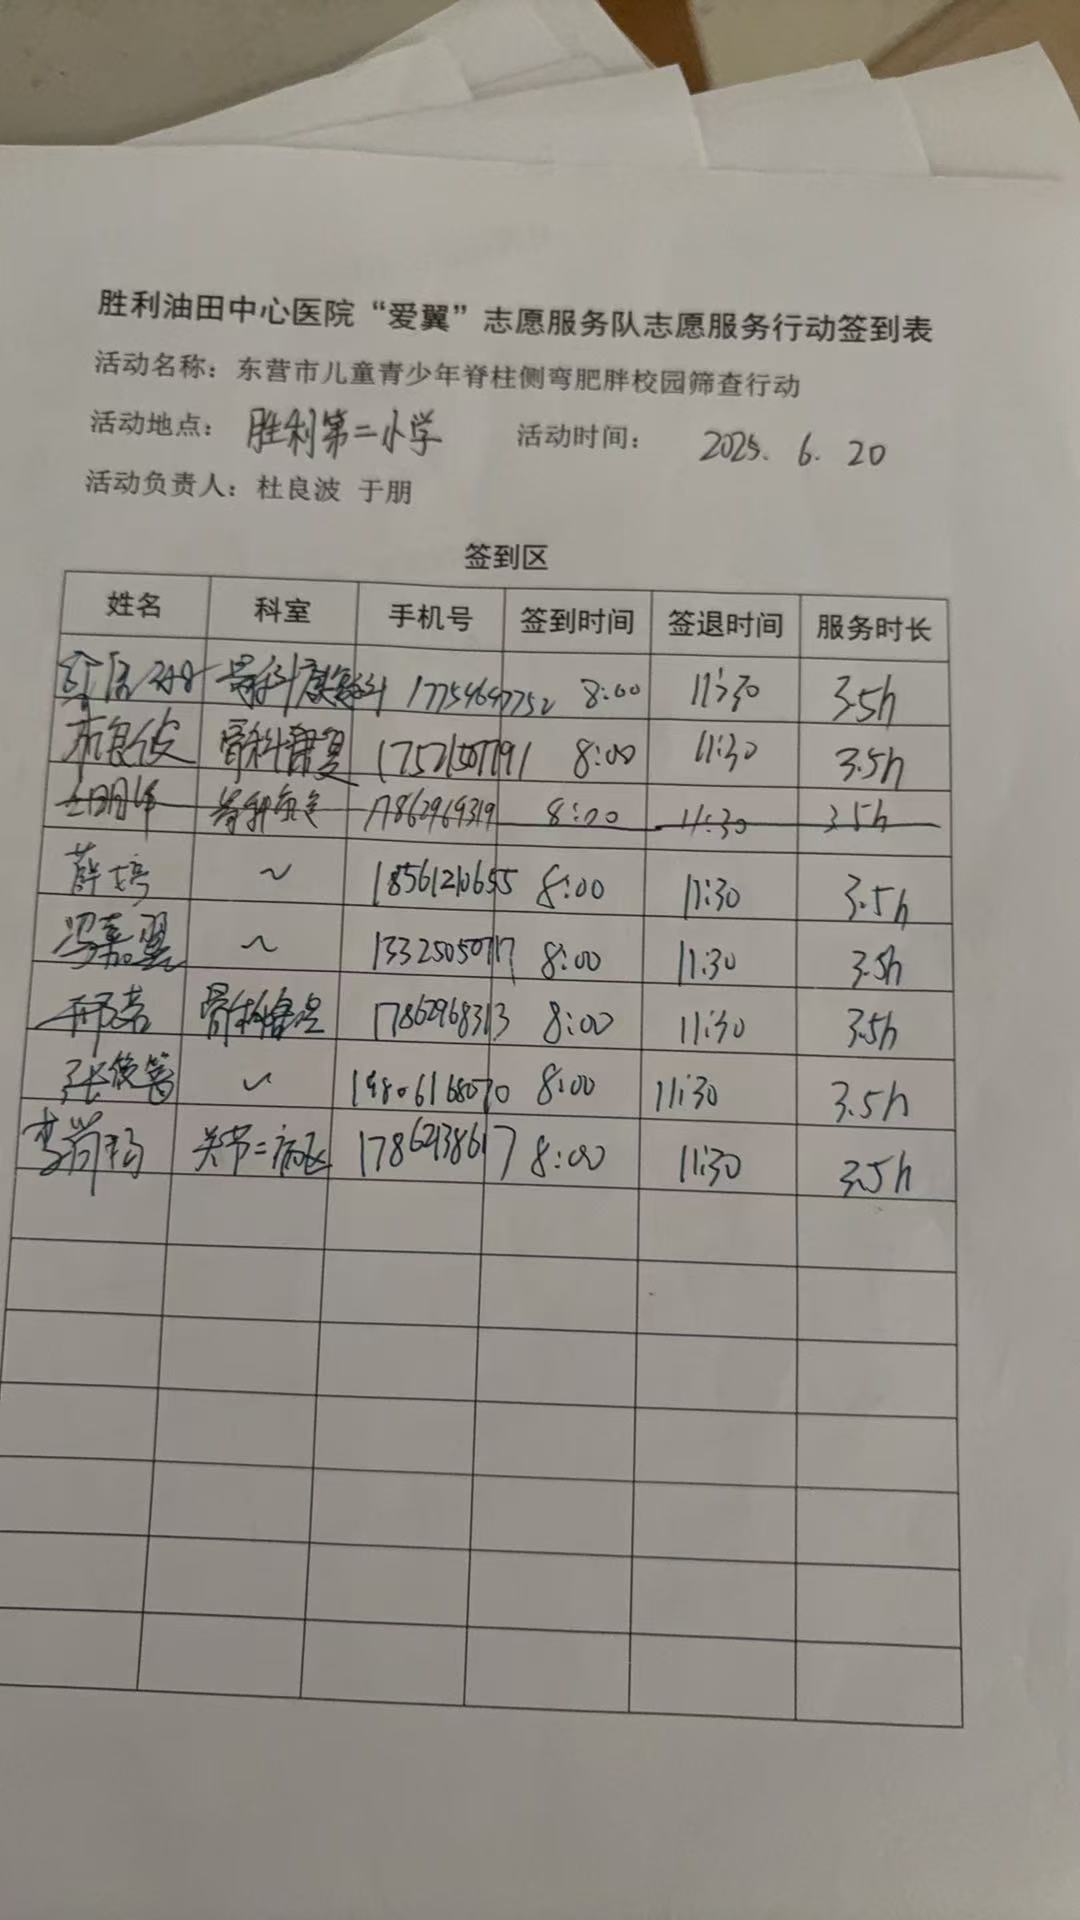 胜利油田中心医院“爱翼”志愿服务队志愿服务行动签到表
活动名称：东营市儿童青少年脊柱侧弯肥胖校园筛查行动
活动地点：胜利第二小学 活动时间：2025.6.20
活动负责人：杜良波 于朋
签到区
姓名 科室 手机号 签到时间 签退时间 服务时长
骨科康复科 17754647752 8:00 11:30 3.5h
杜良波 骨科康复 17521507791 8:00 11:30 3.5h
17862969319 8:00 11:30 3.5h
薛婷 ~ 18561210655 8:00 11:30 3.5h
冯嘉翼 ~ 13325050717 8:00 11:30 3.5h
骨科康复 17862968313 8:00 11:30 3.5h
张俊簪 ~ 19806168070 8:00 11:30 3.5h
关节二病区 17862938617 8:00 11:30 3.5h